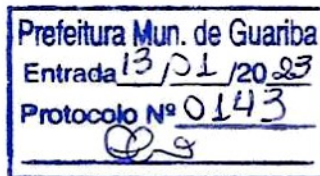 Prefeitura Mun. de Guariba
Entrada 13/01/2023
Protocolo Nº 0143